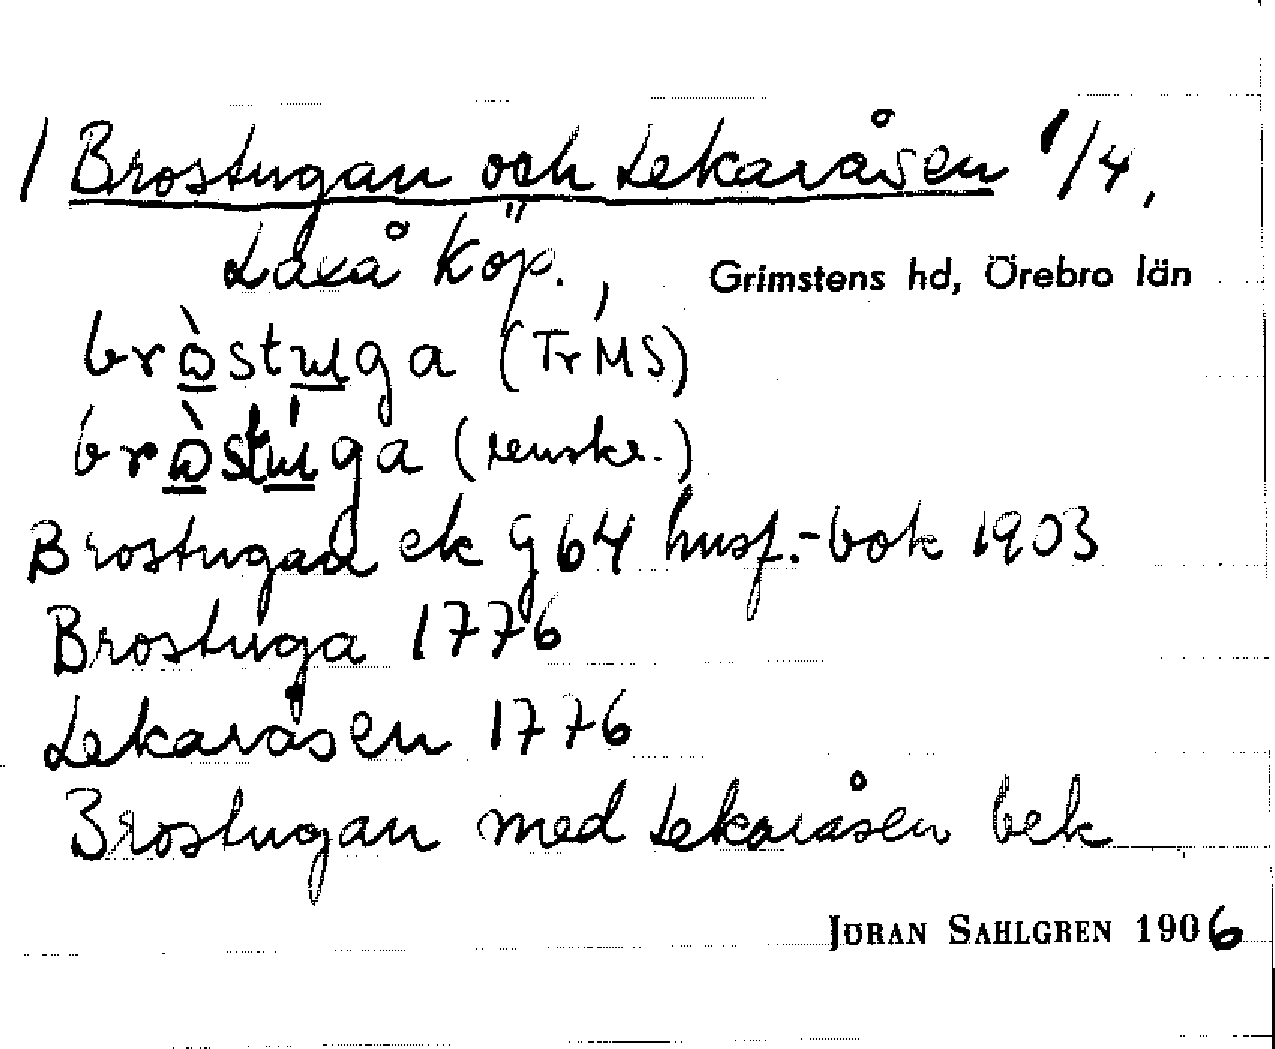 / Brostugan och Lekaråsen 1/4,
Laxå köp., Grimstens hd, Örebro län
bròstuga (TrMS)
bròstúga (renskr.)
Brostugan ek G 64 husf.-bok 1903
Brostuga 1776
Lekaråsen 1776
Brostugan med Lekaråsen bek
JÖRAN SAHLGREN 1906